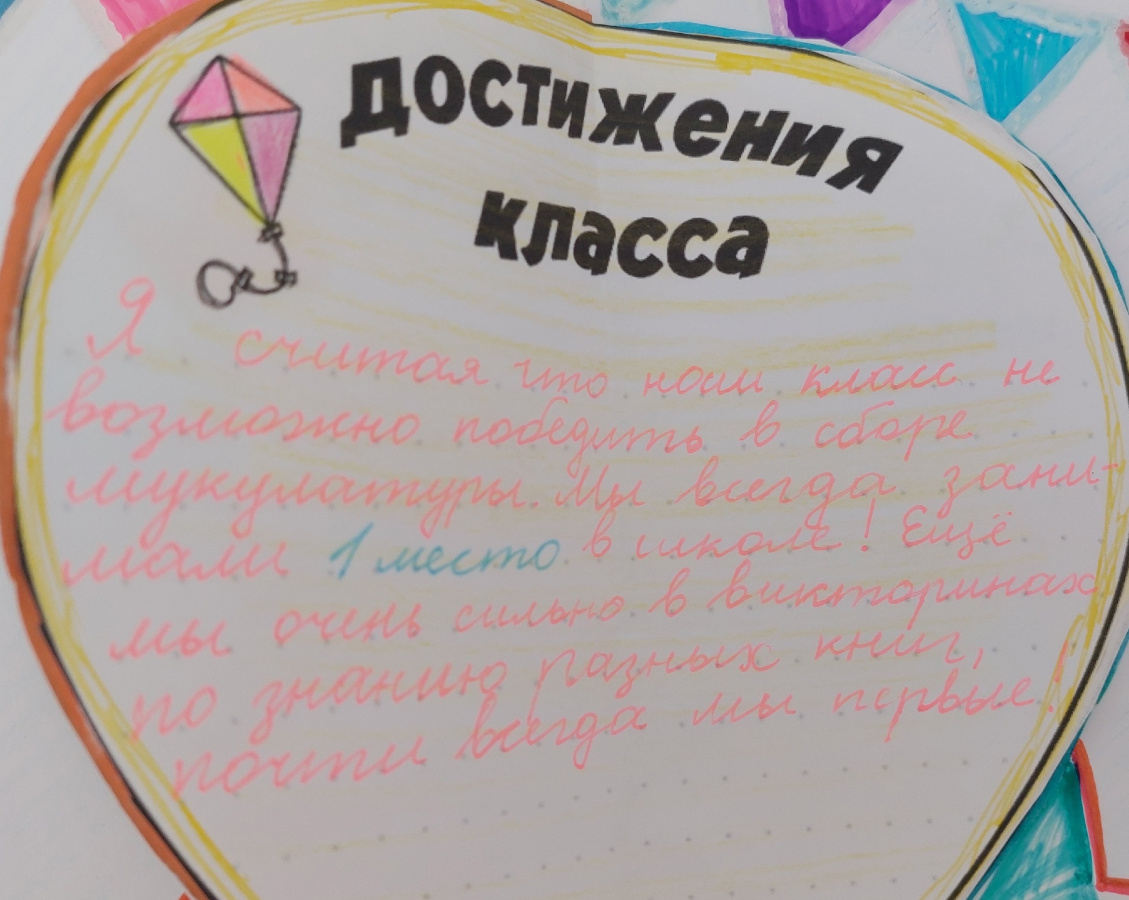 достижения
класса
Я считая что наш класс не
возможно победить в сборе
мукулатуры. Мы всегда зани-
мали 1 место в школе! Ещё
мы очень сильно в викторинах
по знанию разных книг,
почти всегда мы первые!